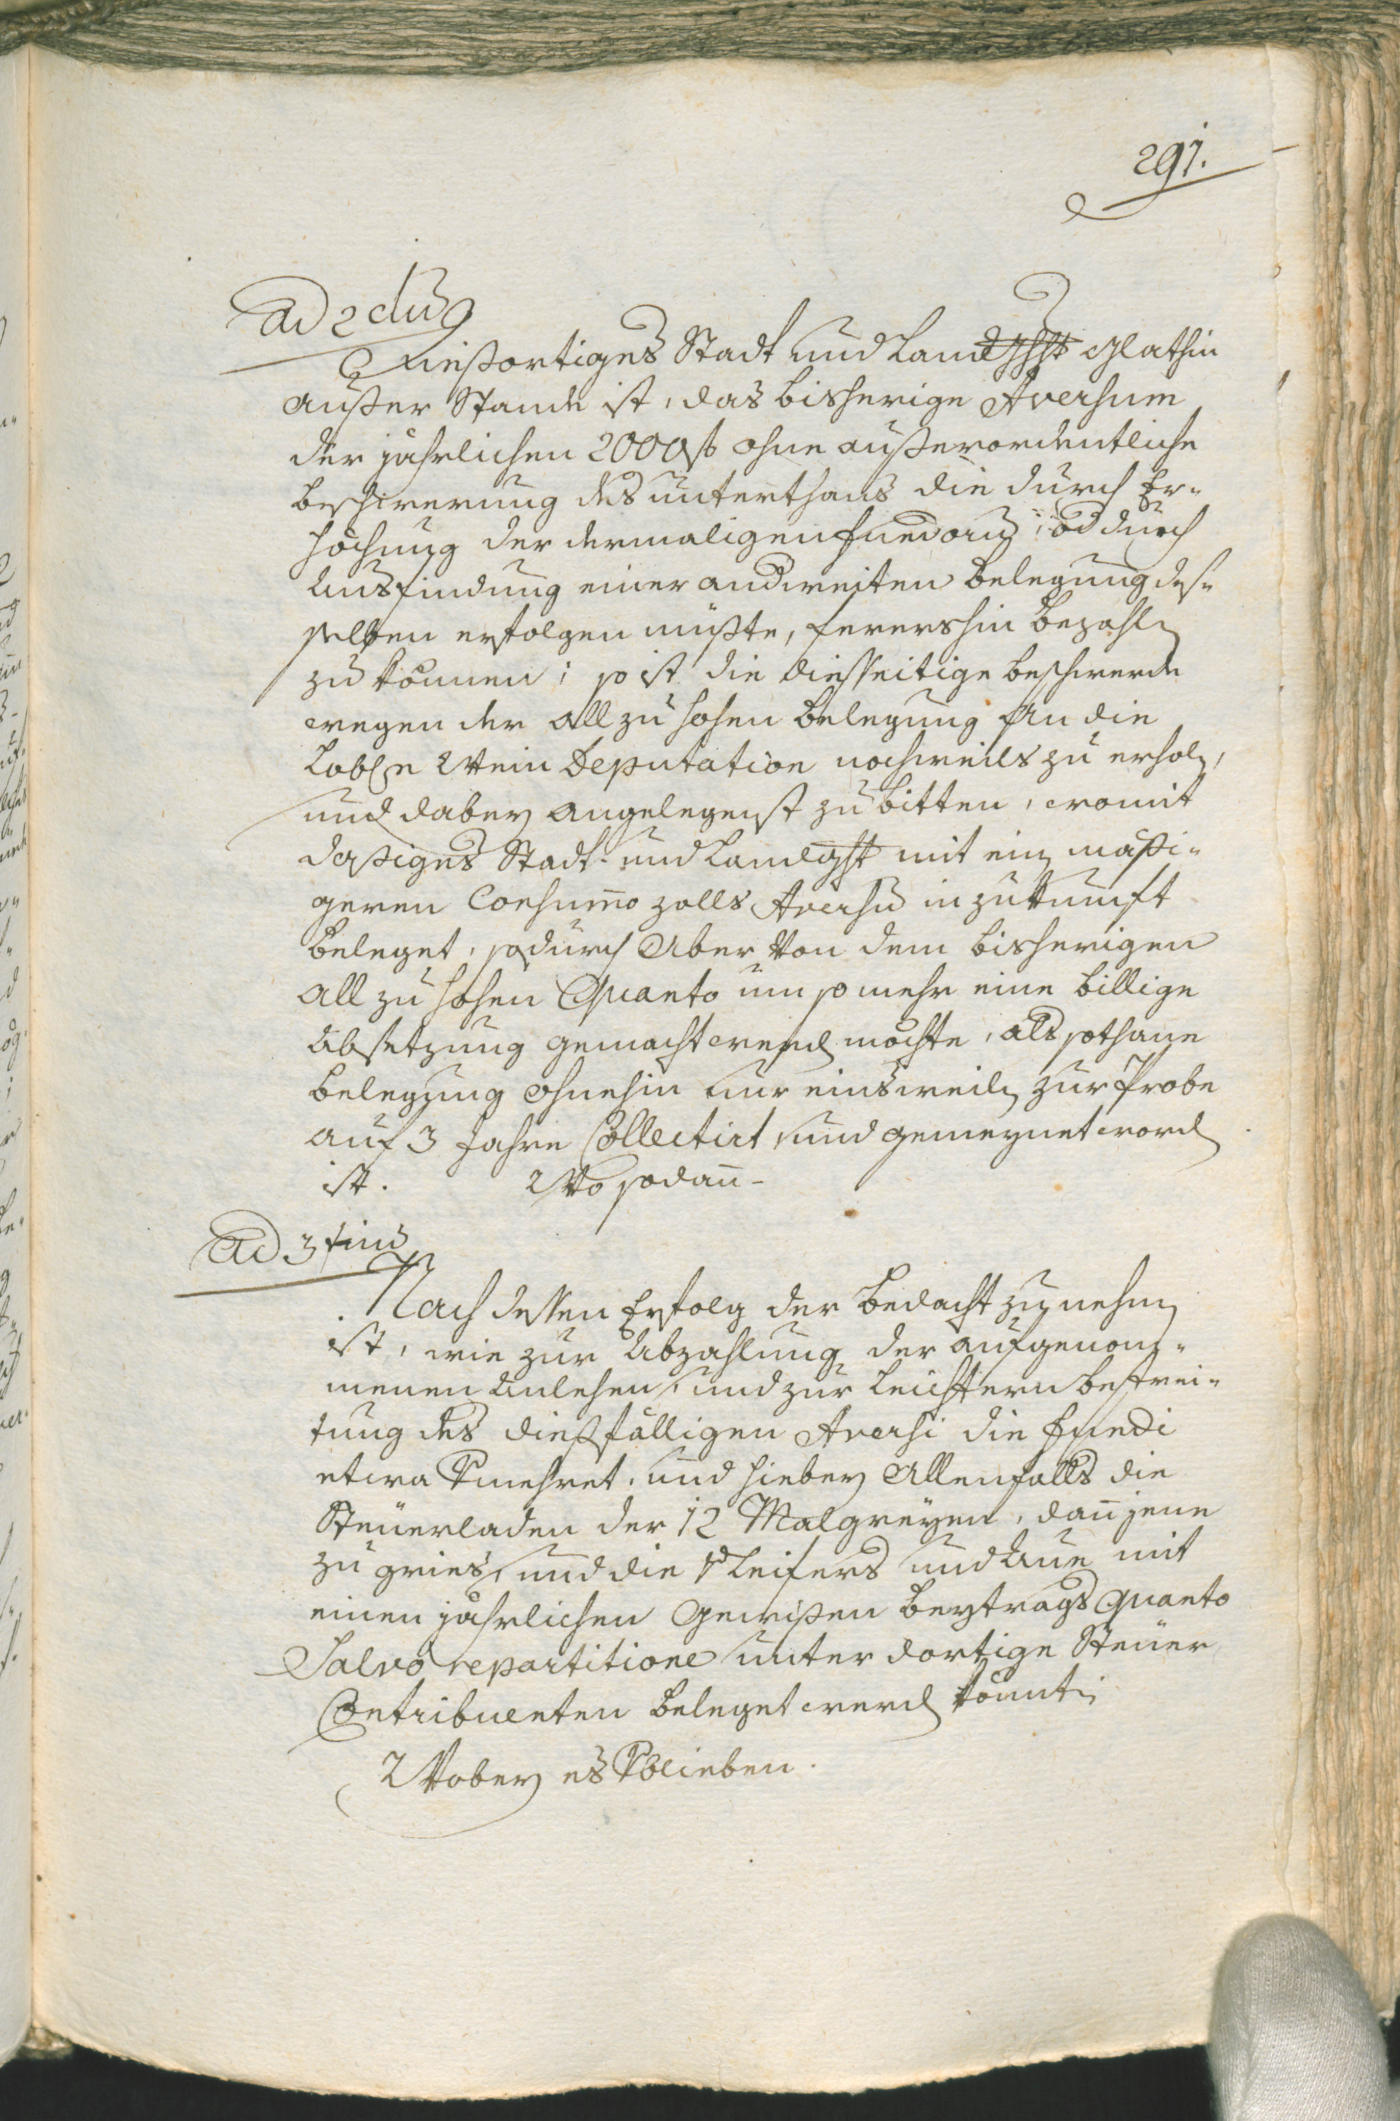 291.
Ad 2dum
Diesortiges Stadt und Landght glathin
ausser Stande ist, das bisherige Aversum
der jährlichen 2000 f ohne ausserordentliche
beschwerung des unterthans die durch Er-
höchung der dermaligen fundorum, od durch
Ausfindung einer andweiten belegung des-
selben erfolgen müßte, ferershin bezahln
zu können; so ist die diesseitige beschwerde
wegen der all zu hohen belegung an die
Lobln Wein Deputation nochweils zu erholn,
und dabey angelegenst zu bitten, womit
dasiges Stadt- und Landght mit ein mäßi-
geren Consumo zolls Aversu in zukunft
beleget, sodurch aber von dem bisherigen
all zu hohen Quanto um so mehr eine billige
absetzung gemacht werd möchte, als sothane
belegung ohnehin nur einsweiln zur Probe
auf 3 Jahre Collectirt und gemeynet word
ist. Wo sodann-
Ad 3tium
Nach dessen Erfolg der bedacht zu nehm
ist, wie zur Abzahlung der aufgenom-
menen Anlehen, und zur leichtern bestrei-
tung des diesfälligen Aversi die fundi
etwa Vmehret, und hiebey allenfalls die
Steuerladen der 12 Malgreyen, dann jene
zu gries, und die Leifers und Aue mit
einen jährlichen gewißen beytrags quanto
Salva repartitione unter dortige Steuer
Contribuenten beleget werd könnt
Wobey es Vblieben.